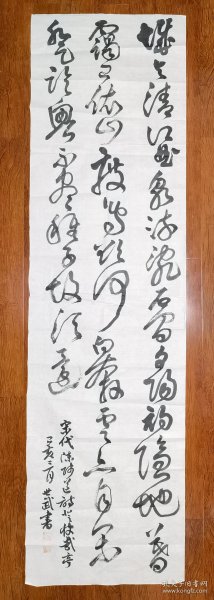 城与清江曲泉流乱石间夕阳初隐地暮
霭已依山度鸟欲何向奔云亦自闲
登临兴不尽稚子故须还
宋代陈师道诗登快哉亭
己亥三月 世武书